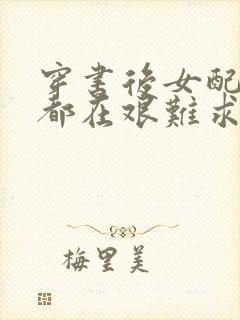 穿書後女配
都在艱難求
梅里美